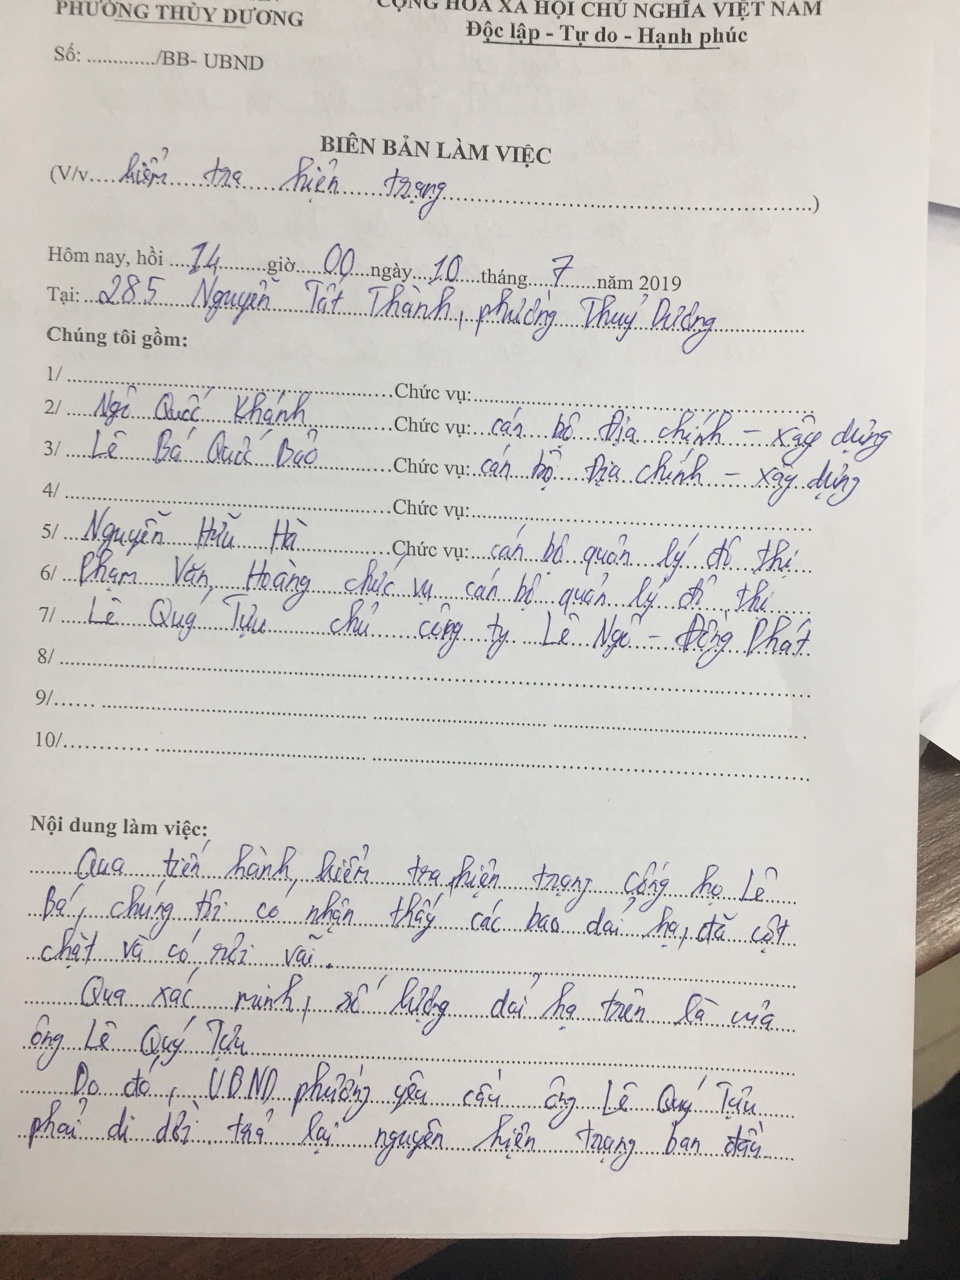 PHƯỜNG THỦY DƯƠNG
CỘNG HÒA XÃ HỘI CHỦ NGHĨA VIỆT NAM
Độc lập - Tự do - Hạnh phúc
Số: ............./BB- UBND
BIÊN BẢN LÀM VIỆC
(V/v.... kiểm tra hiện trạng ....)
Hôm nay, hồi ....14....giờ....00...ngày...10...tháng...7...năm 2019
Tại: 285 Nguyễn Tất Thành, phường Thuỷ Dương
Chúng tôi gồm:
1/ ........ Chức vụ: ........
2/ Ngô Quốc Khánh Chức vụ: cán bộ Địa chính - xây dựng
3/ Lê Bá Quốc Bảo Chức vụ: cán bộ Địa chính - xây dựng
4/ ........ Chức vụ: ........
5/ Nguyễn Hữu Hà Chức vụ: cán bộ quản lý đô thị
6/ Phạm Văn Hoàng chức vụ cán bộ quản lý đô thị
7/ Lê Quý Tựu chủ công ty Lê Ngô - Đông Phát
8/ ........
9/ ........
10/ ........
Nội dung làm việc:
Qua tiến hành kiểm tra hiện trạng cống họ Lê
Bá, chúng tôi có nhận thấy các bao dải hạ, đã cột
chặt và có rơi vãi.
Qua xác minh, số lượng dải hạ trên là của
ông Lê Quý Tựu
Do đó, UBND phường yêu cầu ông Lê Quý Tựu
phải di dời trả lại nguyên hiện trạng ban đầu